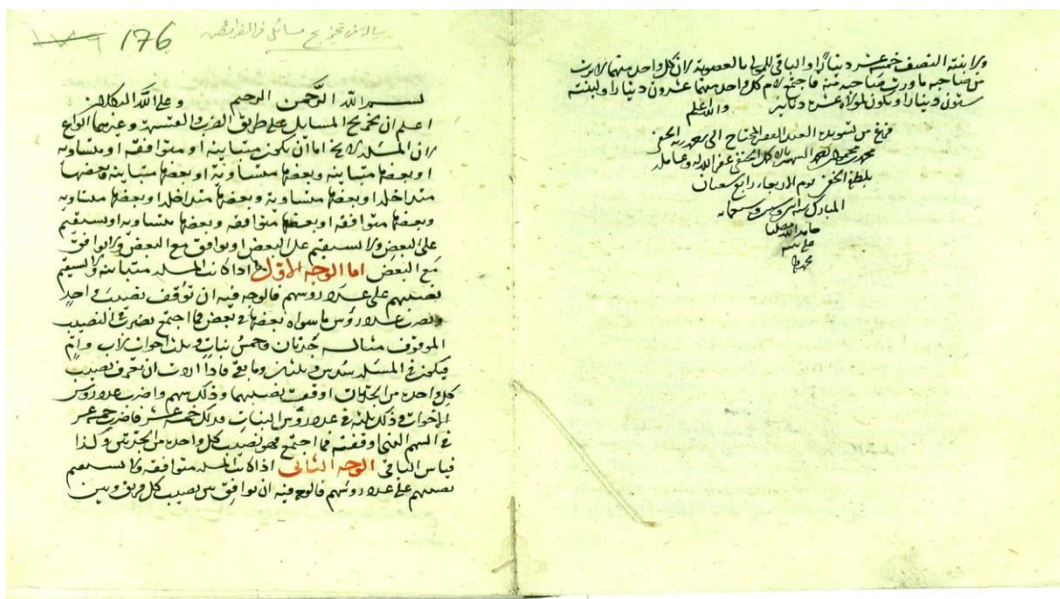 ١٧٩ 176 رسالة في تخريج مسائل في الفرائض
بسم الله الرحمن الرحيم وعلى الله التكلان
اعلم ان تخريج المسايل على طريق الضرب والقسمة وغيرهما انواع
لان المسئلة لا يخ اما ان يكون متباينة او متوافقة او متساوية
او بعضها متباينة وبعضها متساوية او بعضها متباينة وبعضها
متداخلة او بعضها متساوية وبعضها متداخلة او بعضها متساوية
وبعضها متوافقة او بعضها متوافقة وبعضها متساوية او يستقيم
على البعض ولا يستقيم على البعض او يوافق مع البعض ولا يوافق
مع البعض اما الوجه الاول اذا كانت المسئلة متباينة ولا يستقيم
نصيبهم على عدد رؤسهم فالوجه فيه ان توقف نصيب احد
وتضرب عدد رؤس ما سواه بعضها في بعض فما اجتمع تضرب في النصيب
الموقوف مثاله جدتان وخمس بنات وثلث اخوات لاب وام
فيكون في المسئلة سدس وثلثان وما بقي فاذا اردت ان تعرف نصيب
كل واحدة من الجدتان اوقفت نصيبهما وذلك سهم واضرب عدد رؤس
الاخوات وذلك ثلثة في عدد رؤس البنات فذلك خمسة عشر فاضرب خمسة عشر
في السهم الذي اوقفته فما اجتمع فهو نصيب كل واحدة من الجدتين وكذا
قياس الباقي الوجه الثاني اذا كانت المسئلة متوافقة ولا يستقيم
نصيبهم على عدد رؤسهم فالوجه فيه ان توافق بين نصيب كل فريق وبين
ولابنته النصف خمسة عشر دينارا والباقي للمولى بالعصوبة لان كل واحد منهما لا يرث
من صاحبه ما ورث صاحبه منه فاجتمع لام كل واحد منهما عشرون دينارا ولبنته
ستون دينارا ويكون لمولاه عشرة دنانير والله اعلم
فرغ من تسويده العبد الفقير المحتاج الى رحمة ربه الخفي
محمد بن محمود الشهير الحنفي غفر الله له وعامله
بلطفه الخفي يوم الاربعاء رابع شعبان
المبارك سنة
حامدا لله
على نبيه
محمد